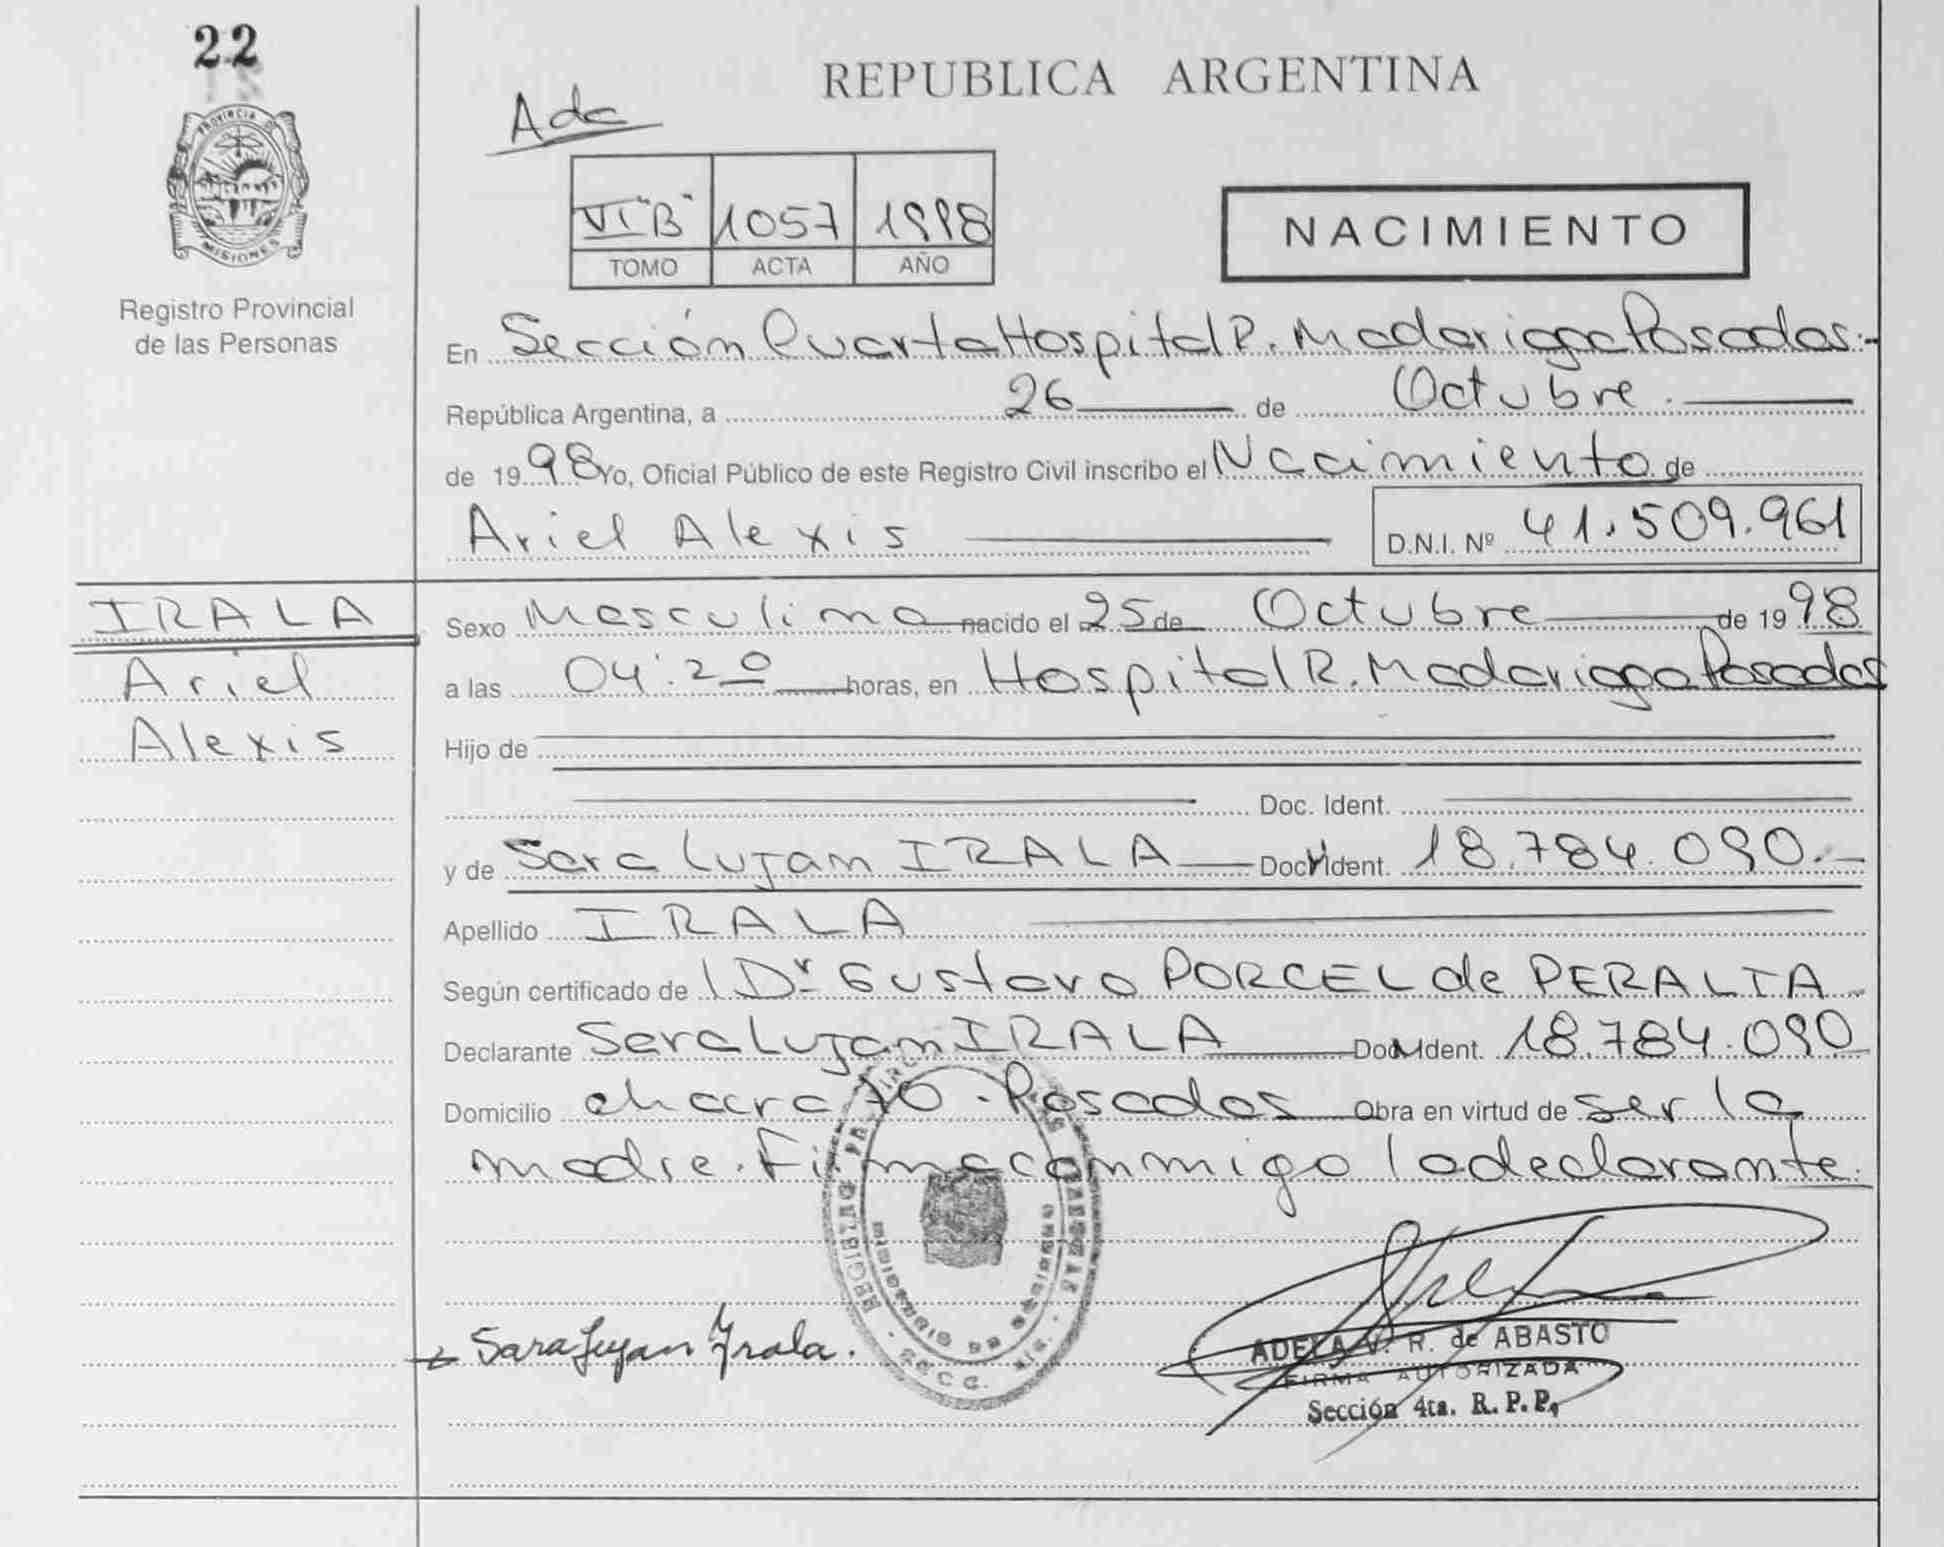 22
PROVINCIA DE
MISIONES
Registro Provincial
de las Personas
REPUBLICA ARGENTINA
Ada
VI "B" 1057 1998
TOMO ACTA AÑO
NACIMIENTO
En Sección Cuarta Hospital R. Madariaga Posadas.-
República Argentina, a 26 de Octubre.
de 1998 Yo, Oficial Público de este Registro Civil inscribo el Nacimiento de
Ariel Alexis D.N.I. Nº 41.509.961
IRALA
Ariel
Alexis
Sexo Masculino nacido el 25 de Octubre de 1998
a las 04:20 horas, en Hospital R. Madariaga Posadas
Hijo de
Doc. Ident.
y de Sara Lujan IRALA Doc. Ident. 18.784.090.-
Apellido IRALA
Según certificado de Dr Gustavo PORCEL de PERALTA
Declarante Sara Lujan IRALA Doc. Ident. 18.784.090
Domicilio chacra 70 - Posadas Obra en virtud de ser la
madre. Firma conmigo la declarante.
Sara Lujan Irala.
ADELA V. R. de ABASTO
FIRMA AUTORIZADA
Sección 4ta. R. P. P.